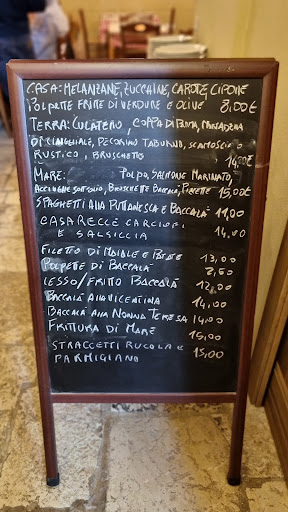 CASA: MELANZANE, ZUCCHINE, CAROTE, CIPOLLE
POLPETTE FRITTE DI VERDURE E OLIVE 8,00€
TERRA: CULATELLO, COPPA DI PARMA, MORTADELLA
DI CINGHIALE, PECORINO TABURNO,
RUSTICO, BRUSCHETTO 14,00€
MARE: POLPO, SALMONE MARINATO,
ACCIUGHE SOTTOLIO, BRUSCHETTE BACCALÀ, 15,00€
SPAGHETTI ALLA PUTTANESCA E BACCALÀ 11,00
CASARECCE CARCIOFI
E SALSICCIA 14,00
FILETTO DI MAIALE E 13,00
POLPETTE DI BACCALÀ
LESSO/FRITTO BACCALÀ 12,00
BACCALÀ ALLA VICENTINA 14,00
BACCALÀ ALLA NONNA TERESA 14,00
FRITTURA DI MARE 15,00
STRACCETTI RUCOLA E
PARMIGIANO 15,00